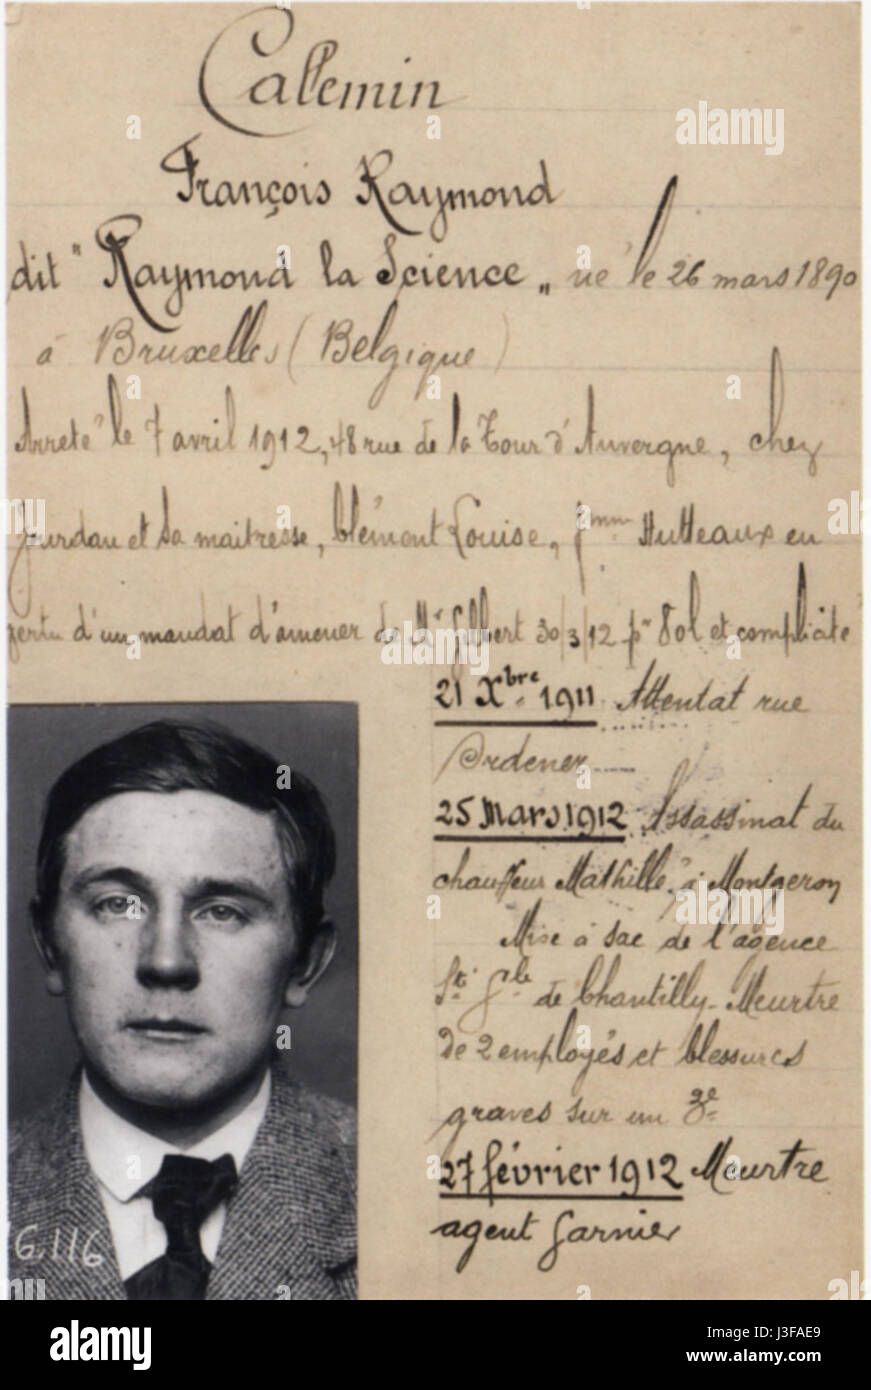 Callemin
François Raymond
dit " Raymond la Science „ né le 26 mars 1890
à Bruxelles ( Belgique )
Arrêté le 7 avril 1912, 48 rue de la Tour d'Auvergne, chez
Jourdan et sa maitresse, Clément Louise, fmme Hutteaux en
vertu d'un mandat d'amener de Mr Gilbert 30/3/12 pr Vol et complicité
21 Xbre 1911 Attentat rue
Ordener
25 Mars 1912 Assassinat du
chauffeur Mathillé, à Montgeron
Mise à sac de l'agence
Sté Gale de Chantilly - Meurtre
de 2 employés et blessures
graves sur un 3e
27 février 1912 Meurtre
agent Garnier
G.116
alamy
alamy
Image ID: J3FAE9
www.alamy.com